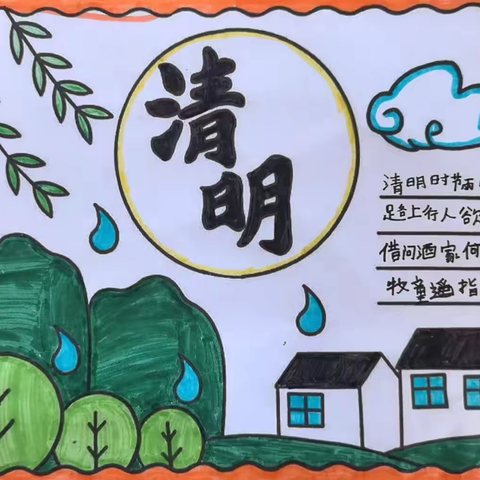 清明
清明时节雨
路上行人欲
借问酒家何
牧童遥指